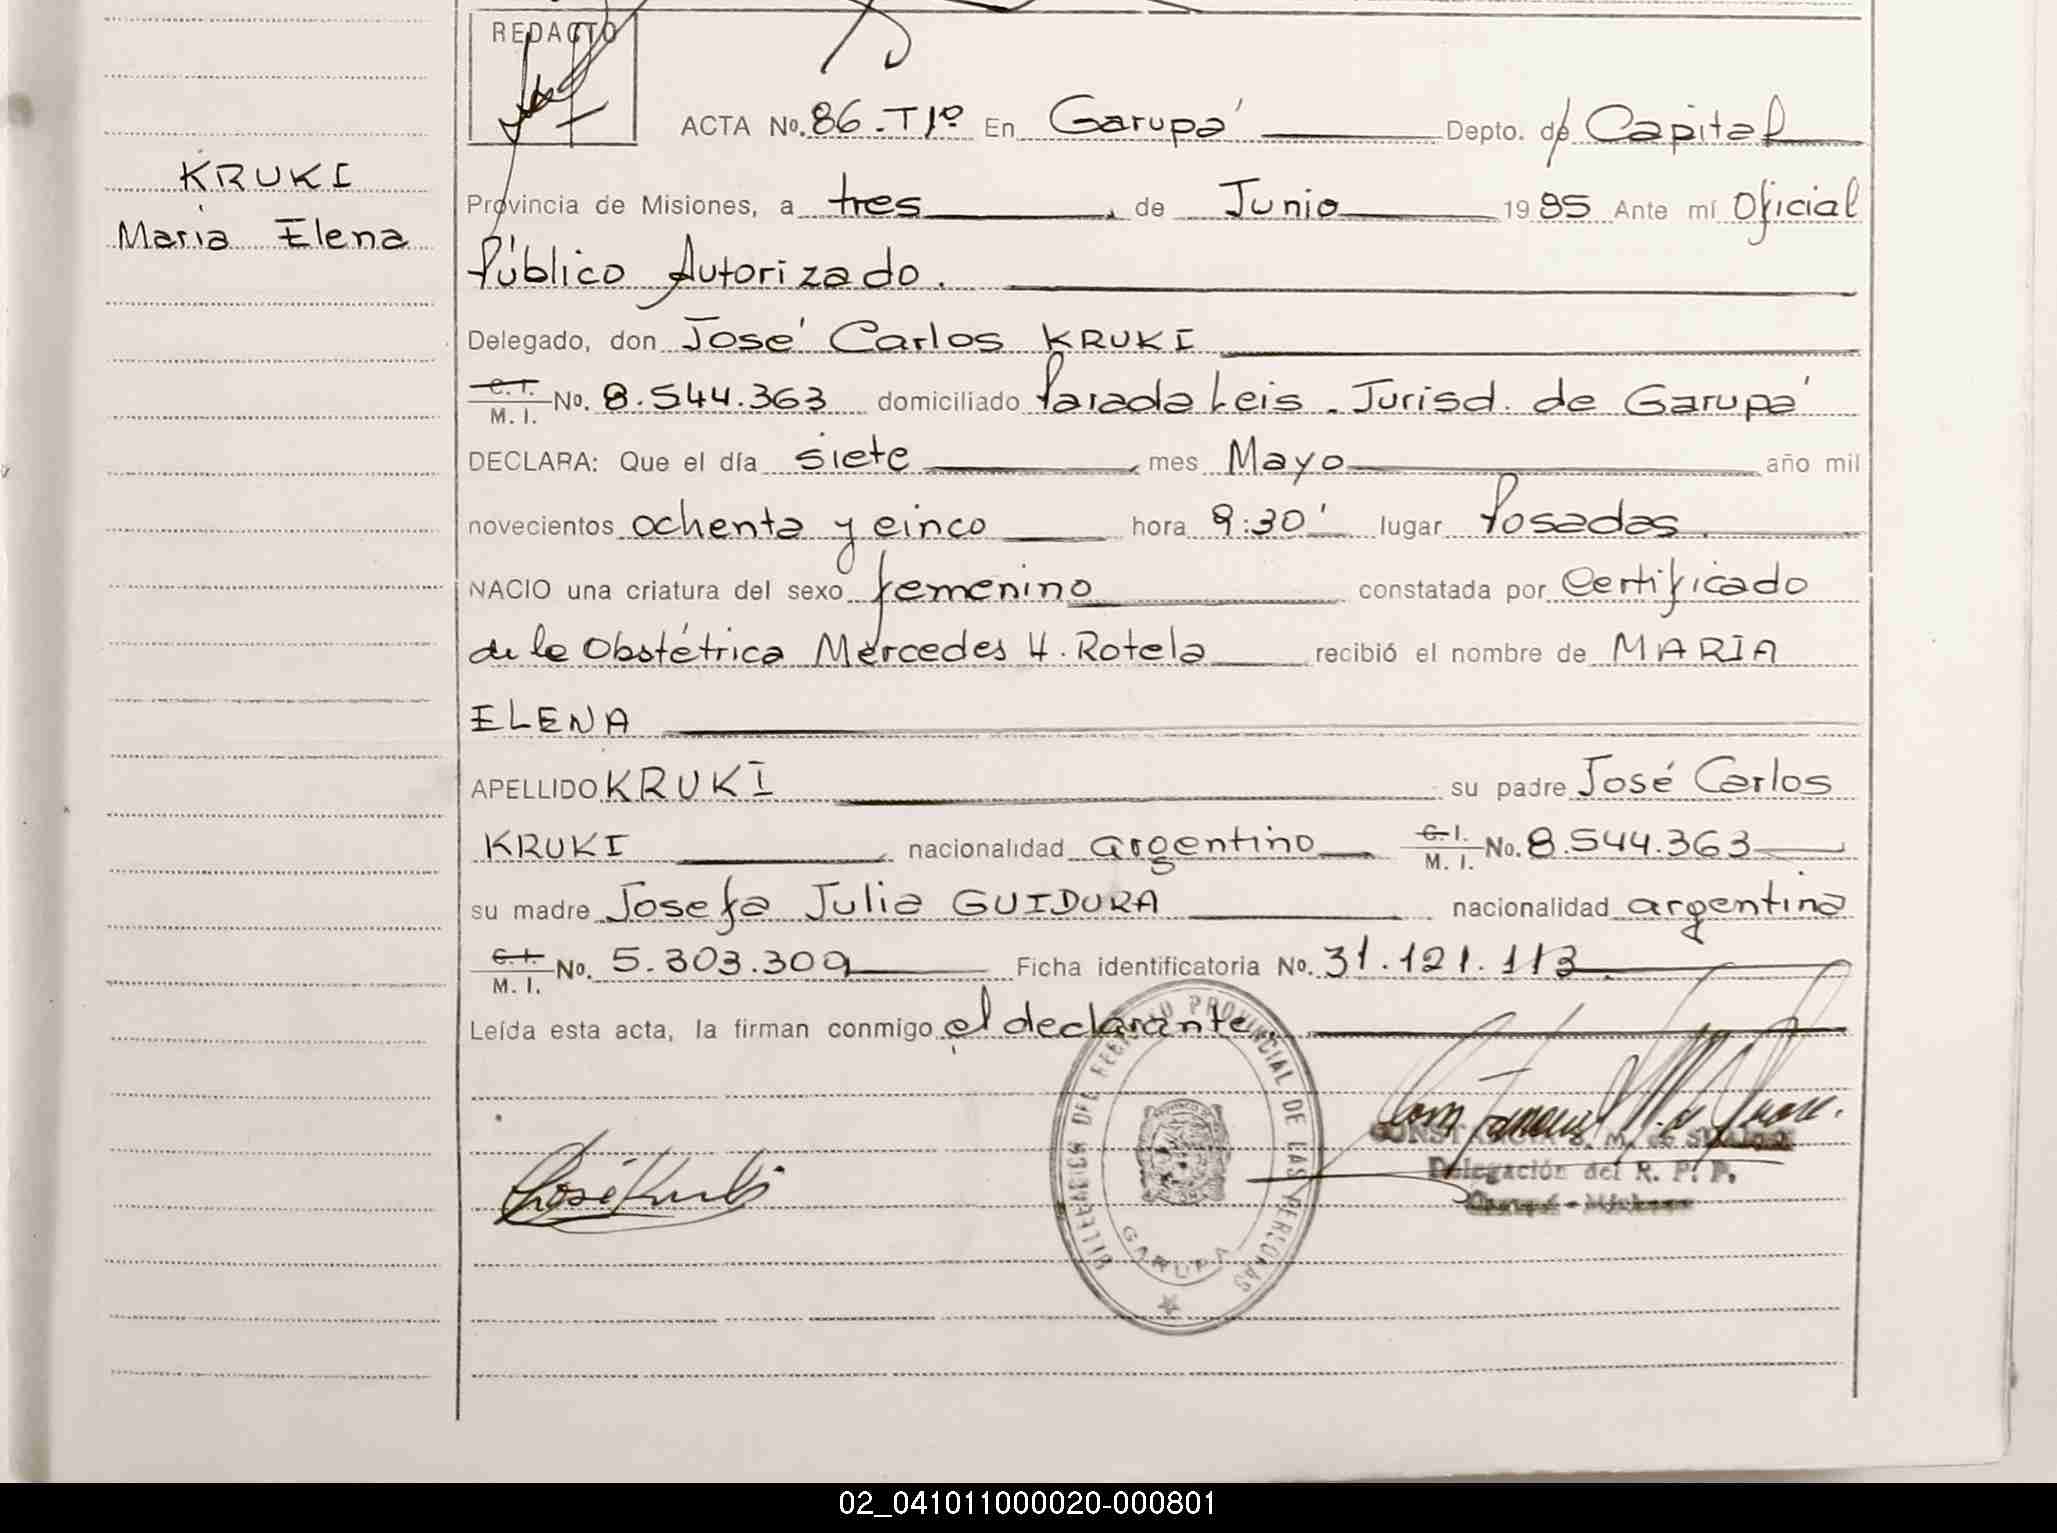 REDACTO
ACTA No. 86.-T1º En Garupá Depto. de Capital
KRUKI
Maria Elena
Provincia de Misiones, a tres de Junio 1985 Ante mí Oficial
Público Autorizado.
Delegado, don José Carlos KRUKI
C. I.
M. I. No. 8.544.363 domiciliado Parada Leis . Jurisd. de Garupá
DECLARA: Que el día siete mes Mayo año mil
novecientos ochenta y cinco hora 9:30' lugar Posadas
NACIO una criatura del sexo femenino constatada por Certificado
de la Obstétrica Mercedes H. Rotela recibió el nombre de MARIA
ELENA
APELLIDO KRUKI su padre José Carlos
KRUKI nacionalidad argentino C. I.
M. I. No. 8.544.363
su madre Josefa Julia GUIDURA nacionalidad argentina
C. I.
M. I. No. 5.303.309 Ficha identificatoria No. 31.121.113
Leída esta acta, la firman conmigo el declarante.
DELEGACION DEL REGISTRO PROVINCIAL DE LAS PERSONAS
GARUPA
José Kruki
Delegación del R. P. P.
02_041011000020-000801